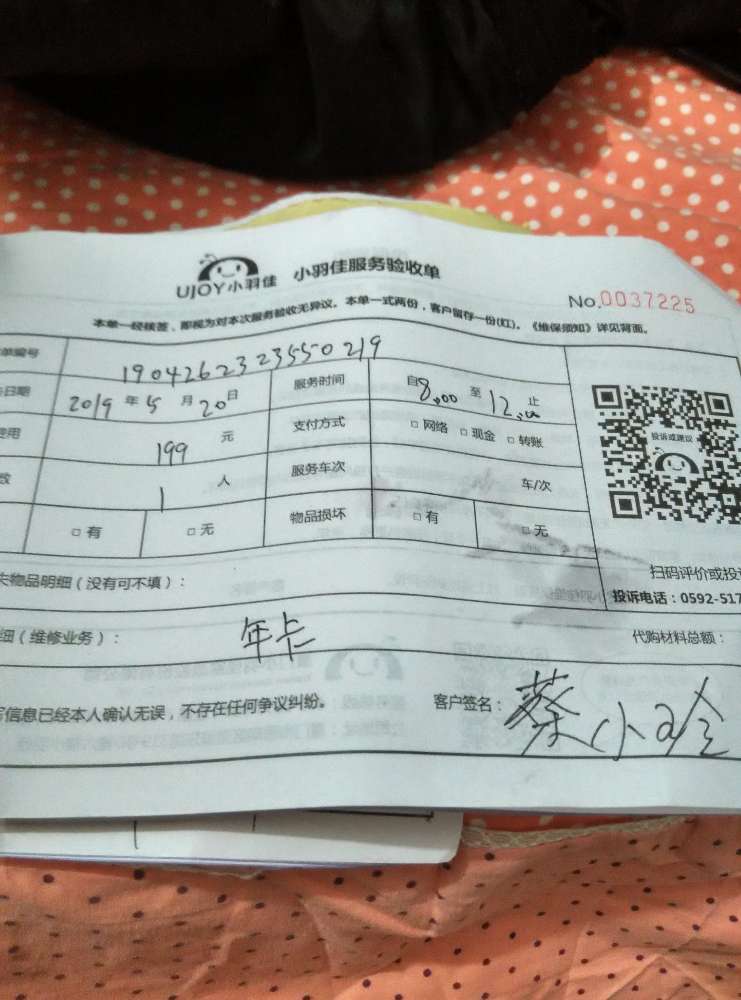 UJOY小羽佳 小羽佳服务验收单
No.0037225
本单一经核签、即视为对本次服务验收无异议。本单一式两份，客户留存一份(红)。《维保须知》详见背面。
单编号 19042623235550219
日期 2019 年 5 月 20 日 服务时间 自 8:00 至 12:00 止
费用 199 元 支付方式 □ 网络 □ 现金 □ 转账
数 1 人 服务车次 车/次
□ 有 □ 无 物品损坏 □ 有 □ 无
投诉或建议
扫码评价或投
物品明细（没有可不填）：
投诉电话：0592-517
细（维修业务）： 年卡 代购材料总额：
写信息已经本人确认无误，不存在任何争议纠纷。 客户签名：蔡小玲